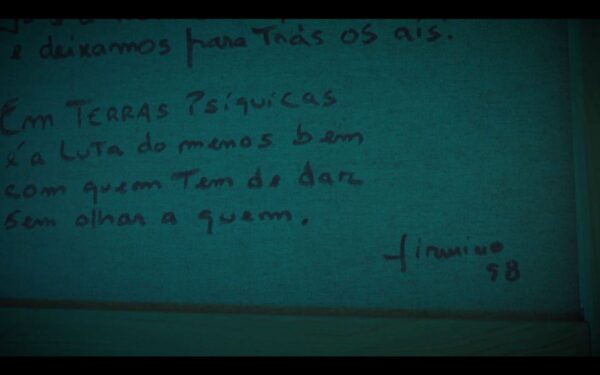 e deixamos para Trás os ais.
Em TERRAS Psíquicas
é a LuTA do menos bem
com quem Tem de dar
Sem olhar a quem.
firmino
98